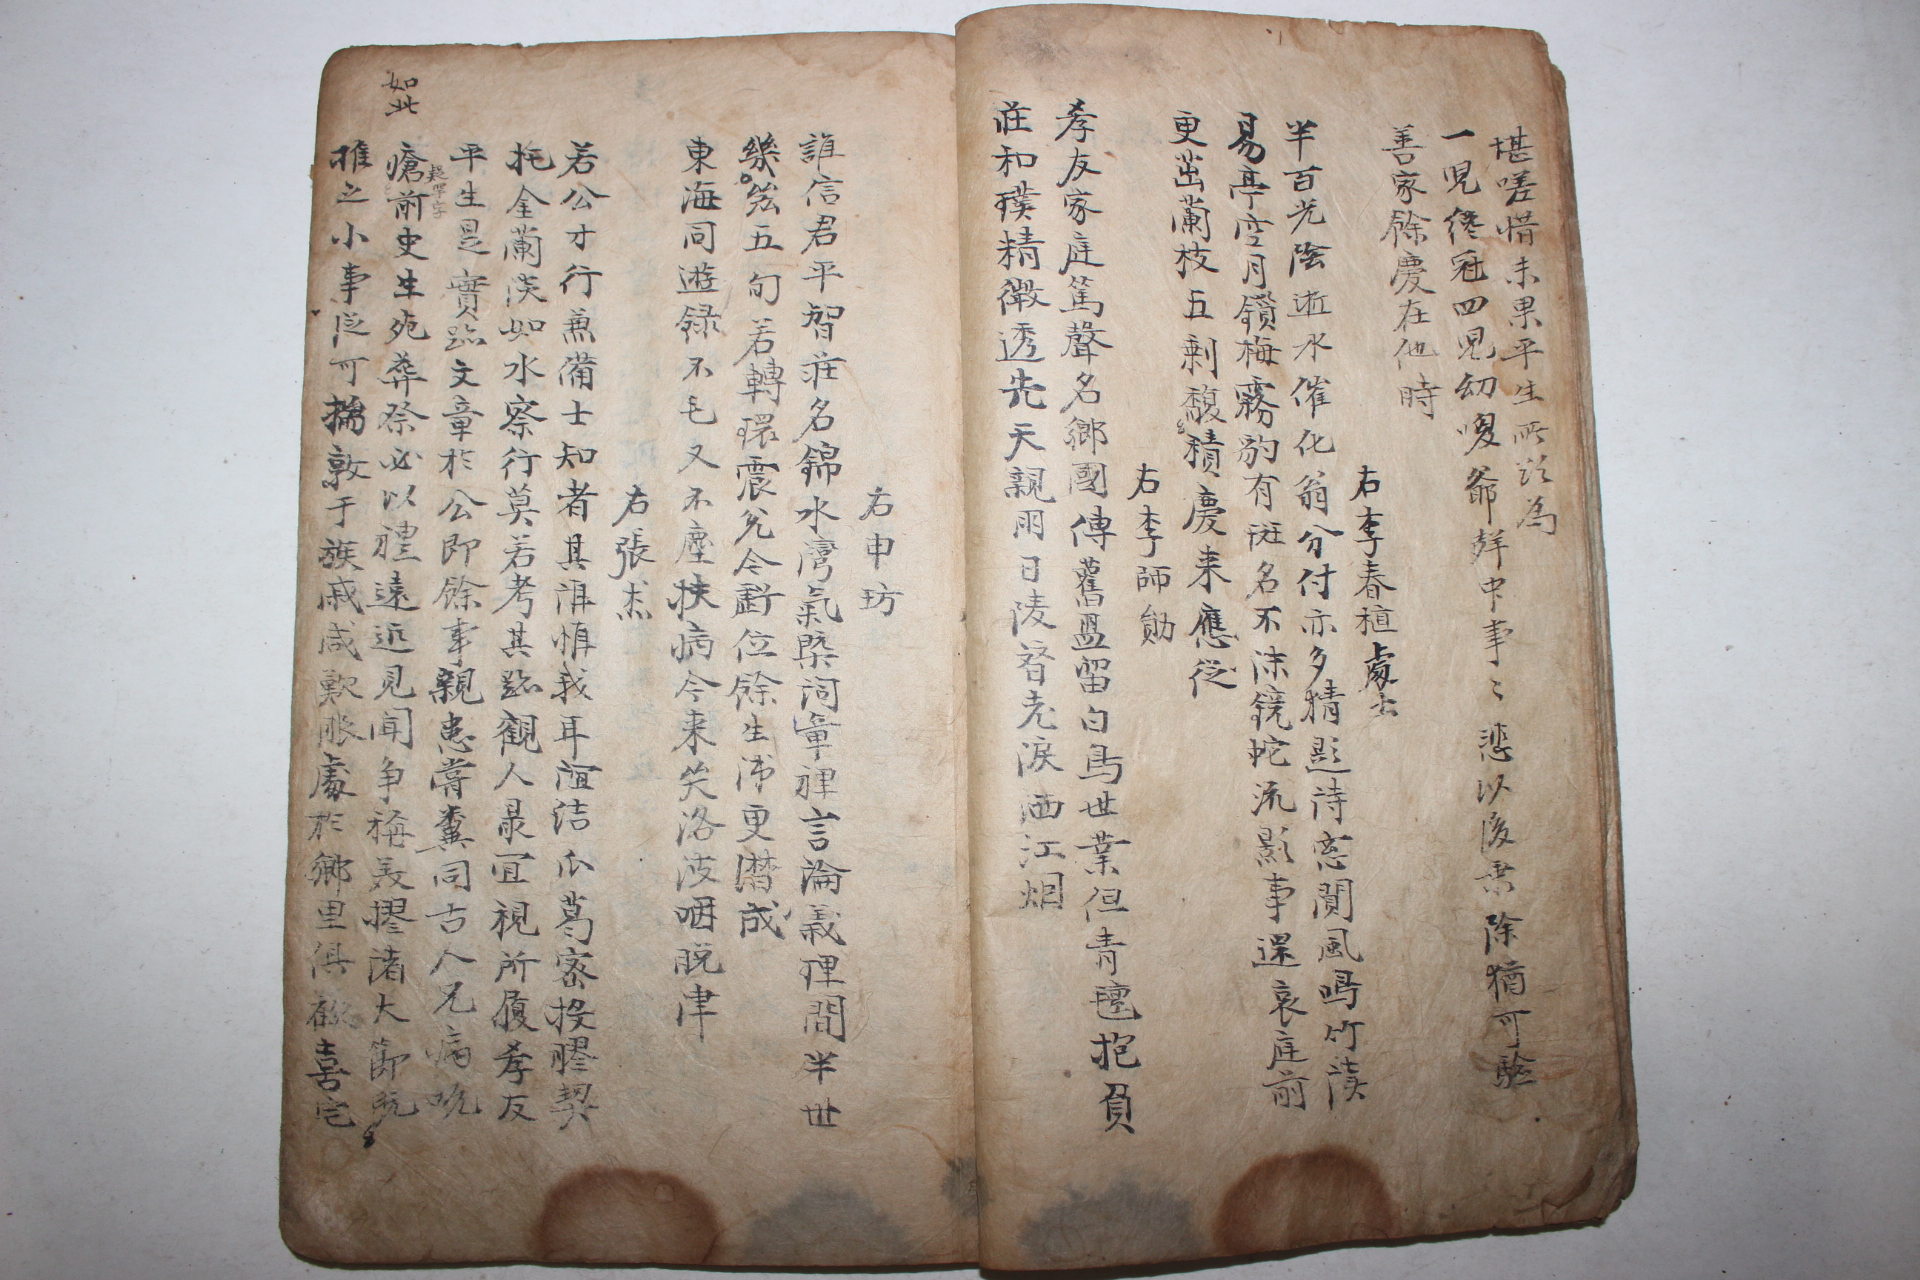 堪嗟惜未果平生所許為
一児終冠四児幼嗄爺群中事〻悲以後素除猶可驗
善家餘慶在他時
右李春植處士
半百光陰逝水催化翁分付亦多猜影詩窓閴風鳴竹淡
易亭空月鎖梅霧豹有斑名不沫鏡蛇流影事還哀庭前
更茁蘭枝五剩馥積慶来應従
右李師勛
孝友家庭篤聲名鄉國傳舊盟留白馬世業但青氊抱負
莊和璞精微透先天親朋日陵替老淚洒江烟
右申坊
誰信君平智莊名錦水灣氣槩詞章裡言論義理間半世
幾 五旬若轉環震兌今虧位餘生沛更潛成
東海同遊録不乇又不塵扶病今来笑洛波咽脱津
右張杰
若公才行兼備士知者其誰惟我耳誼結瓜葛密投膠契
托金蘭淡如水察行莫若考其跡觀人㝡宜視所履孝友
平生是實跡文章於公即餘事親患嘗糞同古人兄病吮
疑單字
瘡前史生死葬祭必以禮遠近見聞争稱羡摎諸大節既
如此
推之小事従可揣敦于族戚咸歎服處於鄉里俱歡喜宅